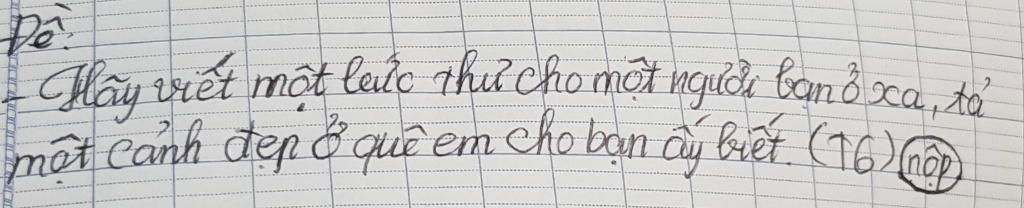 Đề:
- Hãy viết một bức thư cho một người bạn ở xa, tả
một cảnh đẹp ở quê em cho bạn ấy biết. (T6) nộp